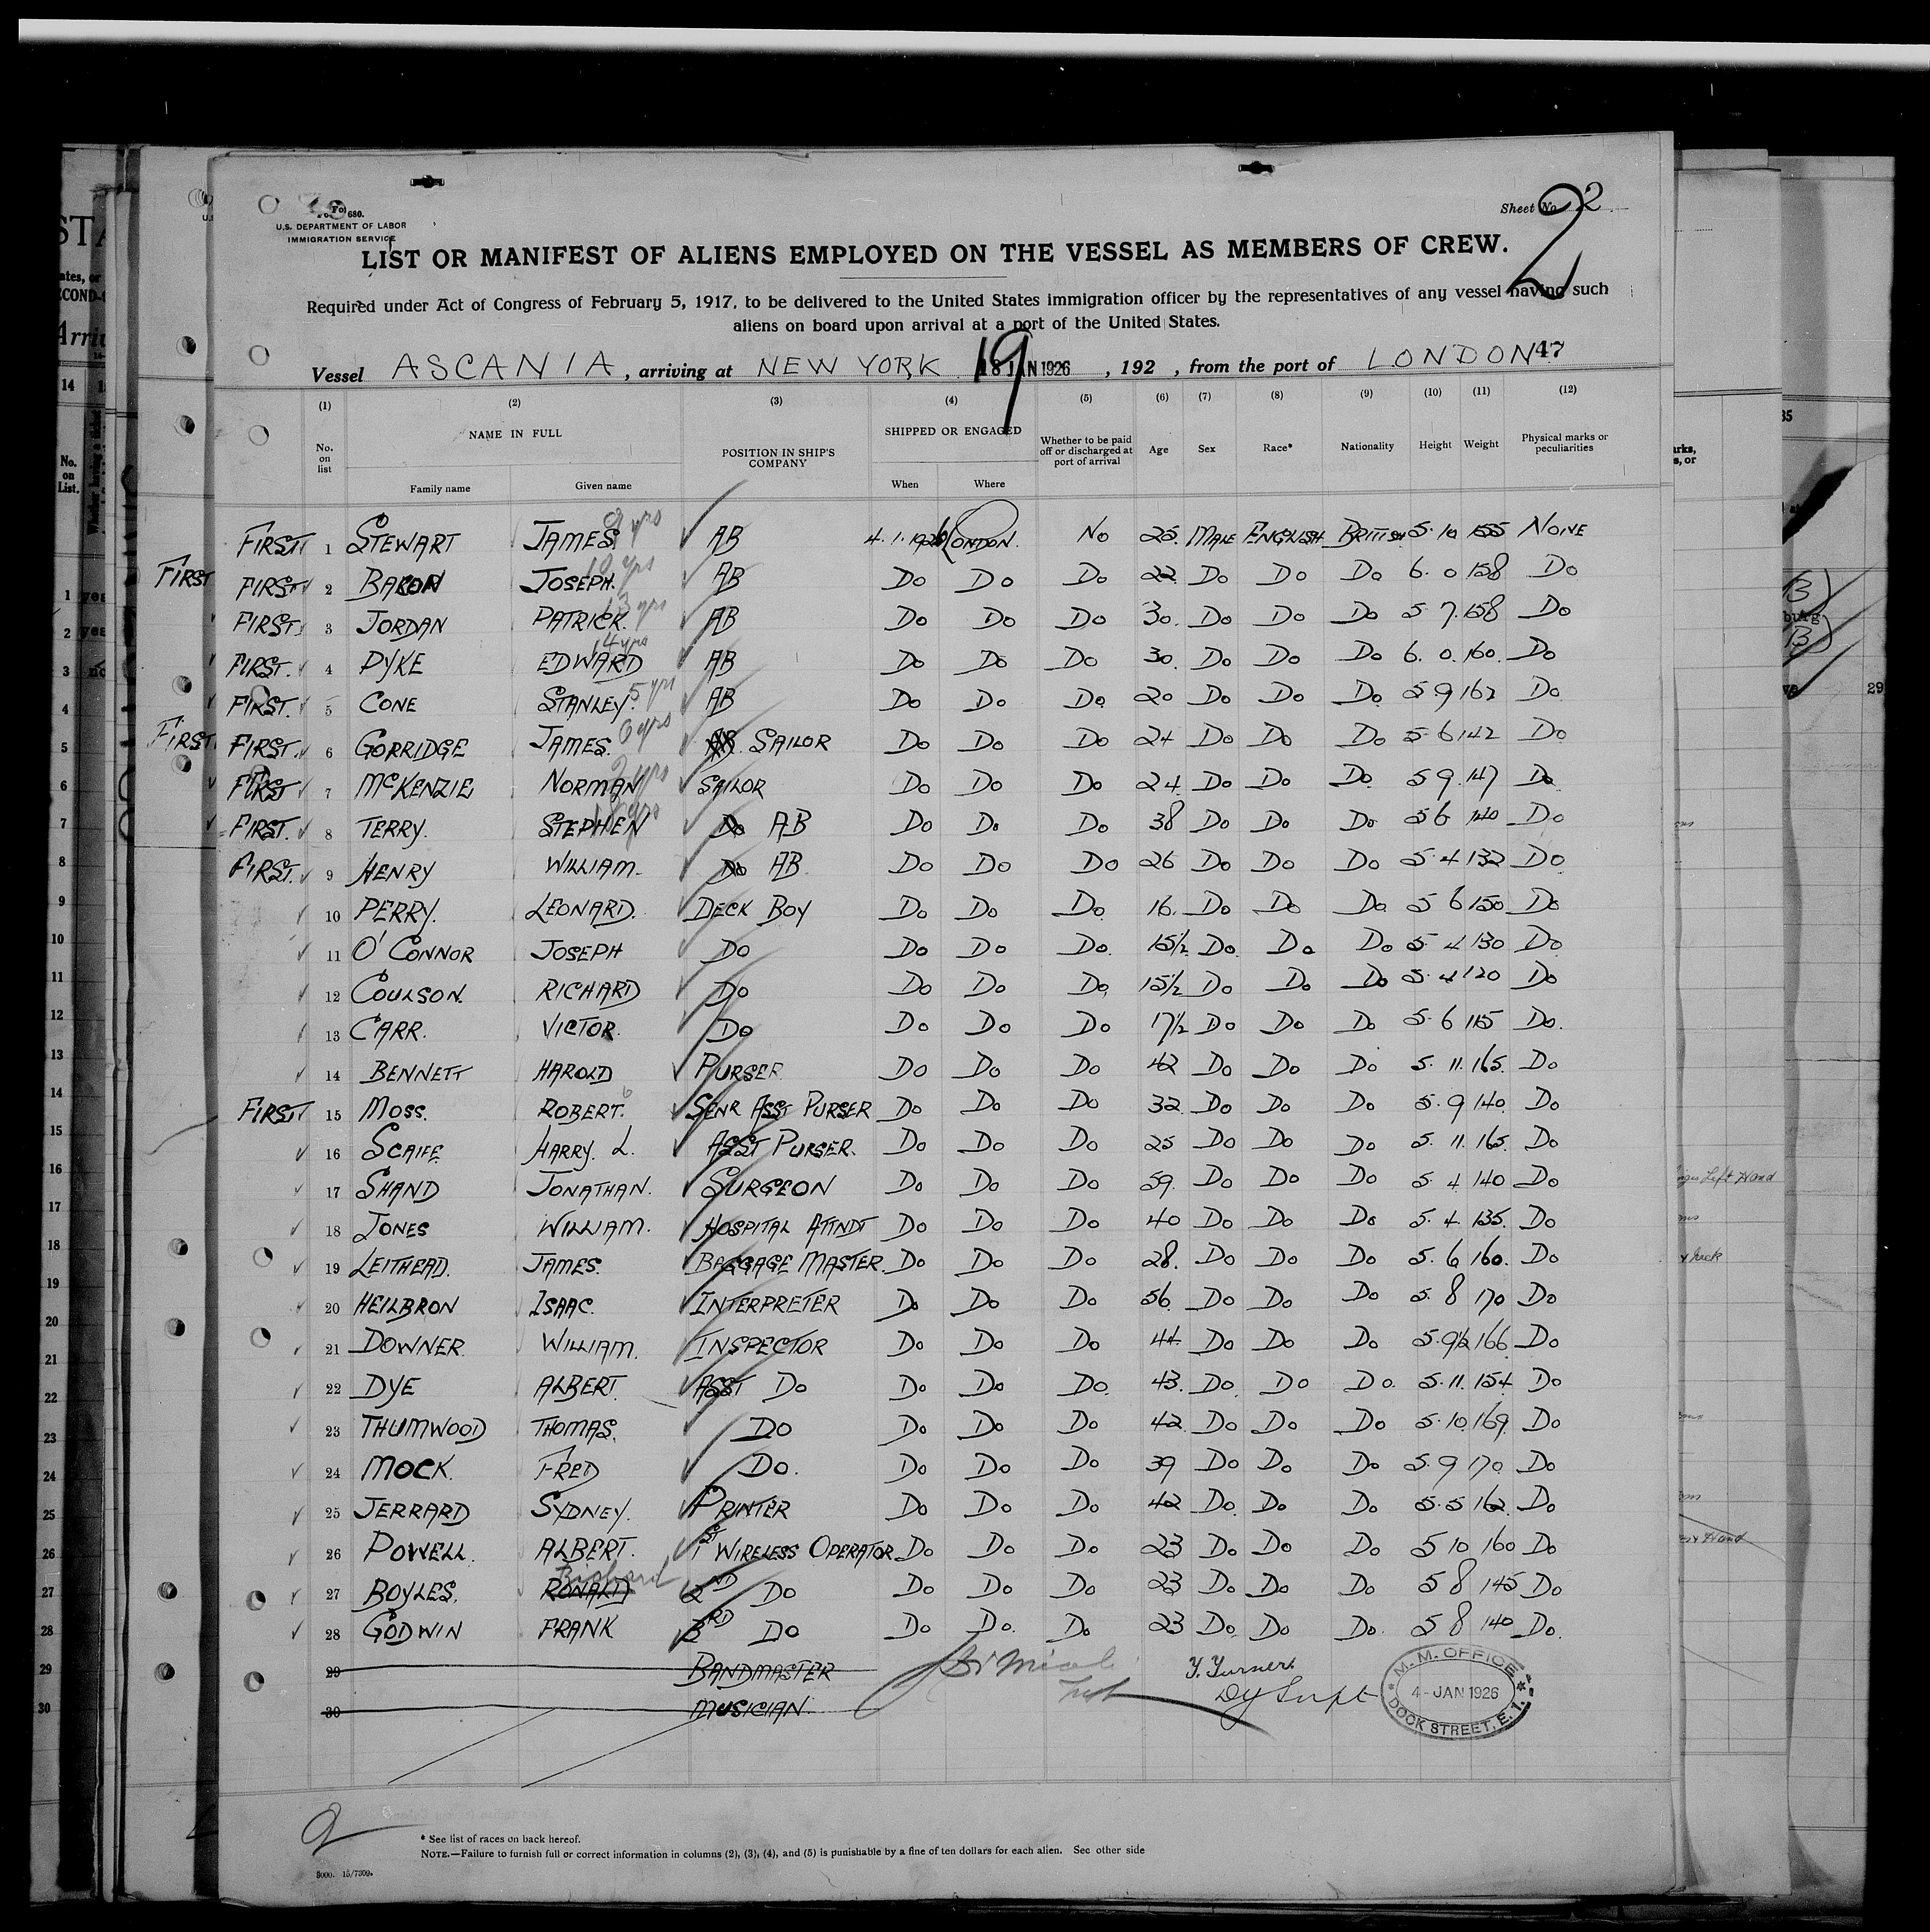 Form 680.
U.S. DEPARTMENT OF LABOR
IMMIGRATION SERVICE
Sheet No. 2
2
LIST OR MANIFEST OF ALIENS EMPLOYED ON THE VESSEL AS MEMBERS OF CREW.
Required under Act of Congress of February 5, 1917, to be delivered to the United States immigration officer by the representatives of any vessel having such
aliens on board upon arrival at a port of the United States.
Vessel ASCANIA, arriving at NEW YORK 19 18 JAN 1926, 192 , from the port of LONDON 47
(1) (2) (3) (4) (5) (6) (7) (8) (9) (10) (11) (12)
No. on list NAME IN FULL Family name Given name POSITION IN SHIP'S COMPANY SHIPPED OR ENGAGED When Where Whether to be paid off or discharged at port of arrival Age Sex Race* Nationality Height Weight Physical marks or peculiarities
FIRST 1 STEWART JAMES 9 yrs AB 4.1.1926 LONDON. No 25. MALE ENGLISH BRITISH 5.10 155 NONE
FIRST 2 BACON JOSEPH. 10 yrs AB Do Do Do 22 Do Do Do 6.0 158 Do
FIRST 3 JORDAN PATRICK. 13 yrs AB Do Do Do 30. Do Do Do 5.7. 158 Do
FIRST. 4 PYKE EDWARD 14 yrs AB Do Do Do 30. Do Do Do 6.0. 160. Do
FIRST. 5 CONE STANLEY. 5 yrs AB Do Do Do 20 Do Do Do 5 9 162 Do
FIRST. 6 GORRIDGE JAMES. 6 yrs AB. SAILOR Do Do Do 24 Do Do Do 5 6 142 Do
FIRST 7 McKENZIE NORMAN yrs SAILOR Do Do Do 24. Do Do Do 5 9. 147 Do
FIRST. 8 TERRY. STEPHEN yrs Do AB Do Do Do 38 Do Do Do 5 6 140 Do
FIRST. 9 HENRY WILLIAM. Do AB Do Do Do 26 Do Do Do 5.4 132 Do
10 PERRY. LEONARD. DECK BOY Do Do Do. 16. Do Do Do 5 6 150 Do
11 O'CONNOR JOSEPH Do Do Do Do. 15½ Do. Do Do 5 4 130 Do
12 COULSON. RICHARD Do Do Do Do. 15½ Do Do Do 5.4 120 Do
13 CARR. VICTOR. Do Do Do Do 17½ Do Do Do 5.6 115 Do.
14 BENNETT HAROLD PURSER Do Do Do 42 Do Do Do 5. 11. 165. Do
FIRST 15 MOSS. ROBERT. 6 SENR ASST PURSER Do Do Do 32. Do Do Do 5.9 140. Do
16 SCAIFE HARRY. L. ASST PURSER. Do Do Do 25 Do Do Do 5. 11. 165. Do
17 SHAND JONATHAN. SURGEON Do Do Do 59. Do Do Do 5.4. 140 Do
18 JONES WILLIAM. HOSPITAL ATTNDT Do Do Do 40 Do Do Do 5.4. 135. Do
19 LEITHEAD. JAMES. BAGGAGE MASTER. Do Do Do 28. Do Do Do 5.6 160. Do
20 HEILBRON ISAAC. INTERPRETER Do Do Do 56. Do Do Do 5.8 170 Do
21 DOWNER WILLIAM. INSPECTOR Do Do Do 44. Do Do Do 5.9½ 166 Do
22 DYE ALBERT. ASST Do Do Do Do. 43. Do. Do Do. 5.11. 154 Do
23 THUMWOOD THOMAS. Do Do Do Do 42 Do Do Do 5.10. 169. Do
24 MOCK. FRED Do. Do Do Do 39 Do Do Do 5.9 170 Do
25 JERRARD SYDNEY. PRINTER Do Do Do 42 Do. Do Do 5.5 162. Do
26 POWELL. ALBERT. 1ST WIRELESS OPERATOR Do Do Do 23 Do Do Do 5 10 160 Do
27 BOYLES. RONALD Richard 2ND Do Do Do Do 23 Do Do Do 5 8 145 Do
28 GODWIN FRANK 3RD Do Do Do. Do 23 Do Do Do. 5 8 140 Do.
29 BANDMASTER
30 MUSICIAN
Y. Turner.
Dy Supt
M.M. OFFICE
4 - JAN 1926
DOCK STREET, E.1.
2
* See list of races on back hereof.
NOTE.—Failure to furnish full or correct information in columns (2), (3), (4), and (5) is punishable by a fine of ten dollars for each alien. See other side
3000. 15/7309.
FIRST
FIRST